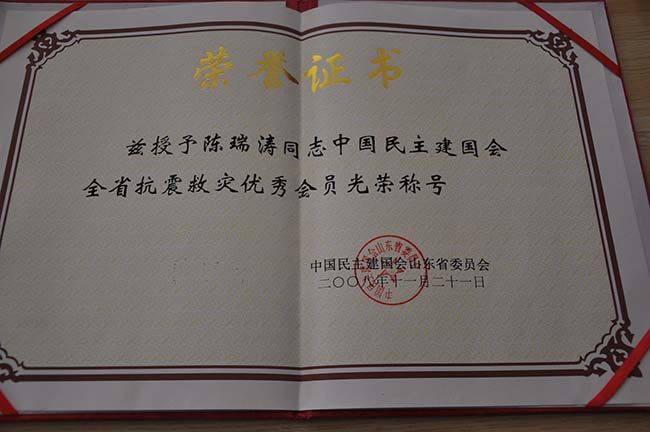 荣誉证书
兹授予陈瑞涛同志中国民主建国会
全省抗震救灾优秀会员光荣称号
中国民主建国会山东省委员会
二〇〇八年十一月二十一日